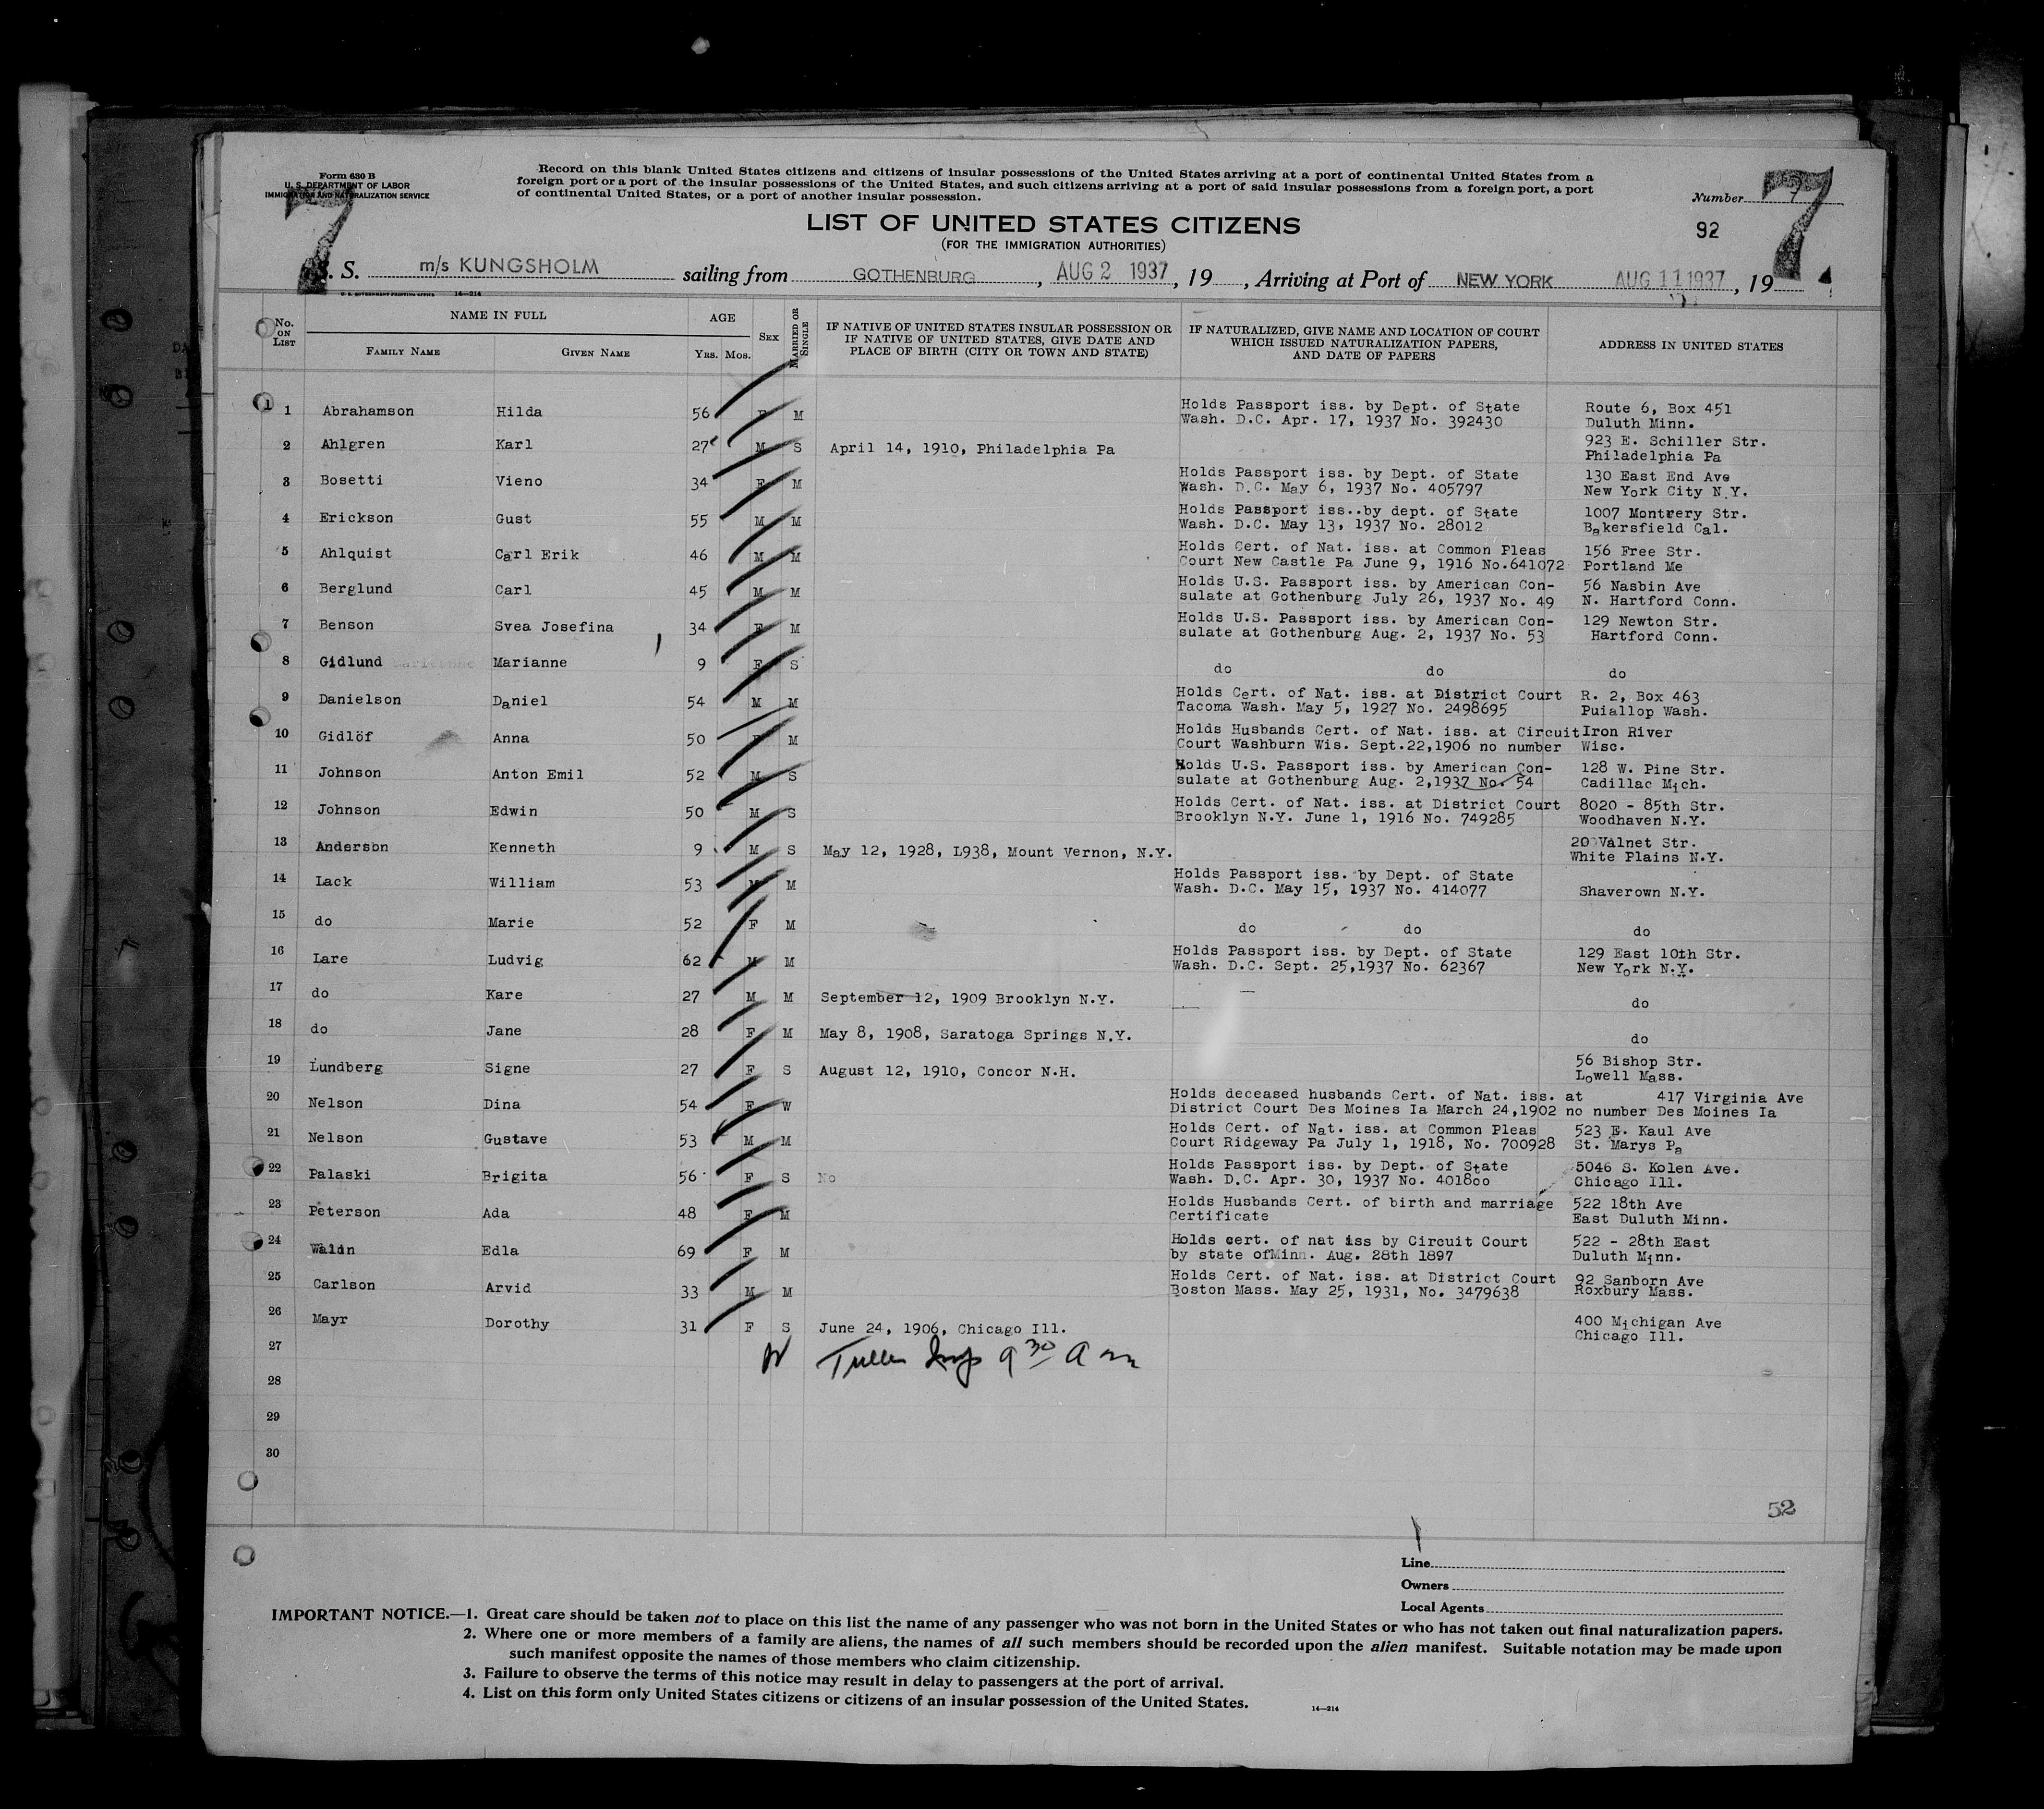 Form 630 B
U. S. DEPARTMENT OF LABOR
IMMIGRATION AND NATURALIZATION SERVICE
7
Record on this blank United States citizens and citizens of insular possessions of the United States arriving at a port of continental United States from a
foreign port or a port of the insular possessions of the United States, and such citizens arriving at a port of said insular possessions from a foreign port, a port
of continental United States, or a port of another insular possession.
Number 7
7
92
LIST OF UNITED STATES CITIZENS
(FOR THE IMMIGRATION AUTHORITIES)
S. S. m/s KUNGSHOLM sailing from GOTHENBURG, AUG 2 1937, 19 , Arriving at Port of NEW YORK AUG 11 1937, 19
U. S. GOVERNMENT PRINTING OFFICE 14—214
No. ON LIST NAME IN FULL AGE SEX MARRIED OR SINGLE IF NATIVE OF UNITED STATES INSULAR POSSESSION OR IF NATIVE OF UNITED STATES, GIVE DATE AND PLACE OF BIRTH (CITY OR TOWN AND STATE) IF NATURALIZED, GIVE NAME AND LOCATION OF COURT WHICH ISSUED NATURALIZATION PAPERS, AND DATE OF PAPERS ADDRESS IN UNITED STATES
FAMILY NAME GIVEN NAME YRS. MOS.
1 Abrahamson Hilda 56 F M Holds Passport iss. by Dept. of State Route 6, Box 451
Wash. D.C. Apr. 17, 1937 No. 392430 Duluth Minn.
2 Ahlgren Karl 27 M S April 14, 1910, Philadelphia Pa 923 E. Schiller Str.
Philadelphia Pa
3 Bosetti Vieno 34 F M Holds Passport iss. by Dept. of State 130 East End Ave
Wash. D.C. May 6, 1937 No. 405797 New York City N.Y.
4 Erickson Gust 55 M M Holds Passport iss..by dept. of State 1007 Montrery Str.
Wash. D.C. May 13, 1937 No. 28012 Bakersfield Cal.
5 Ahlquist Carl Erik 46 M M Holds Cert. of Nat. iss. at Common Pleas 156 Free Str.
Court New Castle Pa June 9, 1916 No.641072 Portland Me
6 Berglund Carl 45 M M Holds U.S. Passport iss. by American Con- 56 Nasbin Ave
sulate at Gothenburg July 26, 1937 No. 49 N. Hartford Conn.
7 Benson Svea Josefina 34 F M Holds U.S. Passport iss. by American Con- 129 Newton Str.
sulate at Gothenburg Aug. 2, 1937 No. 53 Hartford Conn.
8 Gidlund Marianne 9 F S do do do
9 Danielson Daniel 54 M M Holds Cert. of Nat. iss. at District Court R. 2, Box 463
Tacoma Wash. May 5, 1927 No. 2498695 Puiallop Wash.
10 Gidlöf Anna 50 F M Holds Husbands Cert. of Nat. iss. at Circuit Iron River
Court Washburn Wis. Sept.22,1906 no number Wisc.
11 Johnson Anton Emil 52 M S Holds U.S. Passport iss. by American Con- 128 W. Pine Str.
sulate at Gothenburg Aug. 2,1937 No. 54 Cadillac Mich.
12 Johnson Edwin 50 M S Holds Cert. of Nat. iss. at District Court 8020 - 85th Str.
Brooklyn N.Y. June 1, 1916 No. 749285 Woodhaven N.Y.
13 Anderson Kenneth 9 M S May 12, 1928, L938, Mount Vernon, N.Y. 20 Valnet Str.
White Plains N.Y.
14 Lack William 53 M M Holds Passport iss. by Dept. of State
Wash. D.C. May 15, 1937 No. 414077 Shaverown N.Y.
15 do Marie 52 F M do do do
16 Lare Ludvig 62 M M Holds Passport iss. by Dept. of State 129 East 10th Str.
Wash. D.C. Sept. 25,1937 No. 62367 New York N.Y.
17 do Kare 27 M M September 12, 1909 Brooklyn N.Y. do
18 do Jane 28 F M May 8, 1908, Saratoga Springs N.Y. do
19 Lundberg Signe 27 F S August 12, 1910, Concor N.H. 56 Bishop Str.
Lowell Mass.
20 Nelson Dina 54 F W Holds deceased husbands Cert. of Nat. iss. at 417 Virginia Ave
District Court Des Moines Ia March 24,1902 no number Des Moines Ia
21 Nelson Gustave 53 M M Holds Cert. of Nat. iss. at Common Pleas 523 E. Kaul Ave
Court Ridgeway Pa July 1, 1918, No. 700928 St. Marys Pa
22 Palaski Brigita 56 F S No Holds Passport iss. by Dept. of State 5046 S. Kolen Ave.
Wash. D.C. Apr. 30, 1937 No. 401800 Chicago Ill.
23 Peterson Ada 48 F M Holds Husbands Cert. of birth and marriage 522 18th Ave
Certificate East Duluth Minn.
24 Waldn Edla 69 F M Holds cert. of nat iss by Circuit Court 522 - 28th East
by state ofMinn. Aug. 28th 1897 Duluth Minn.
25 Carlson Arvid 33 M M Holds Cert. of Nat. iss. at District Court 92 Sanborn Ave
Boston Mass. May 25, 1931, No. 3479638 Roxbury Mass.
26 Mayr Dorothy 31 F S June 24, 1906, Chicago Ill. 400 Michigan Ave
Chicago Ill.
27 9 30 am
28
29
30
52
Line
Owners
Local Agents
IMPORTANT NOTICE.—1. Great care should be taken not to place on this list the name of any passenger who was not born in the United States or who has not taken out final naturalization papers.
2. Where one or more members of a family are aliens, the names of all such members should be recorded upon the alien manifest. Suitable notation may be made upon
such manifest opposite the names of those members who claim citizenship.
3. Failure to observe the terms of this notice may result in delay to passengers at the port of arrival.
4. List on this form only United States citizens or citizens of an insular possession of the United States.
14—214